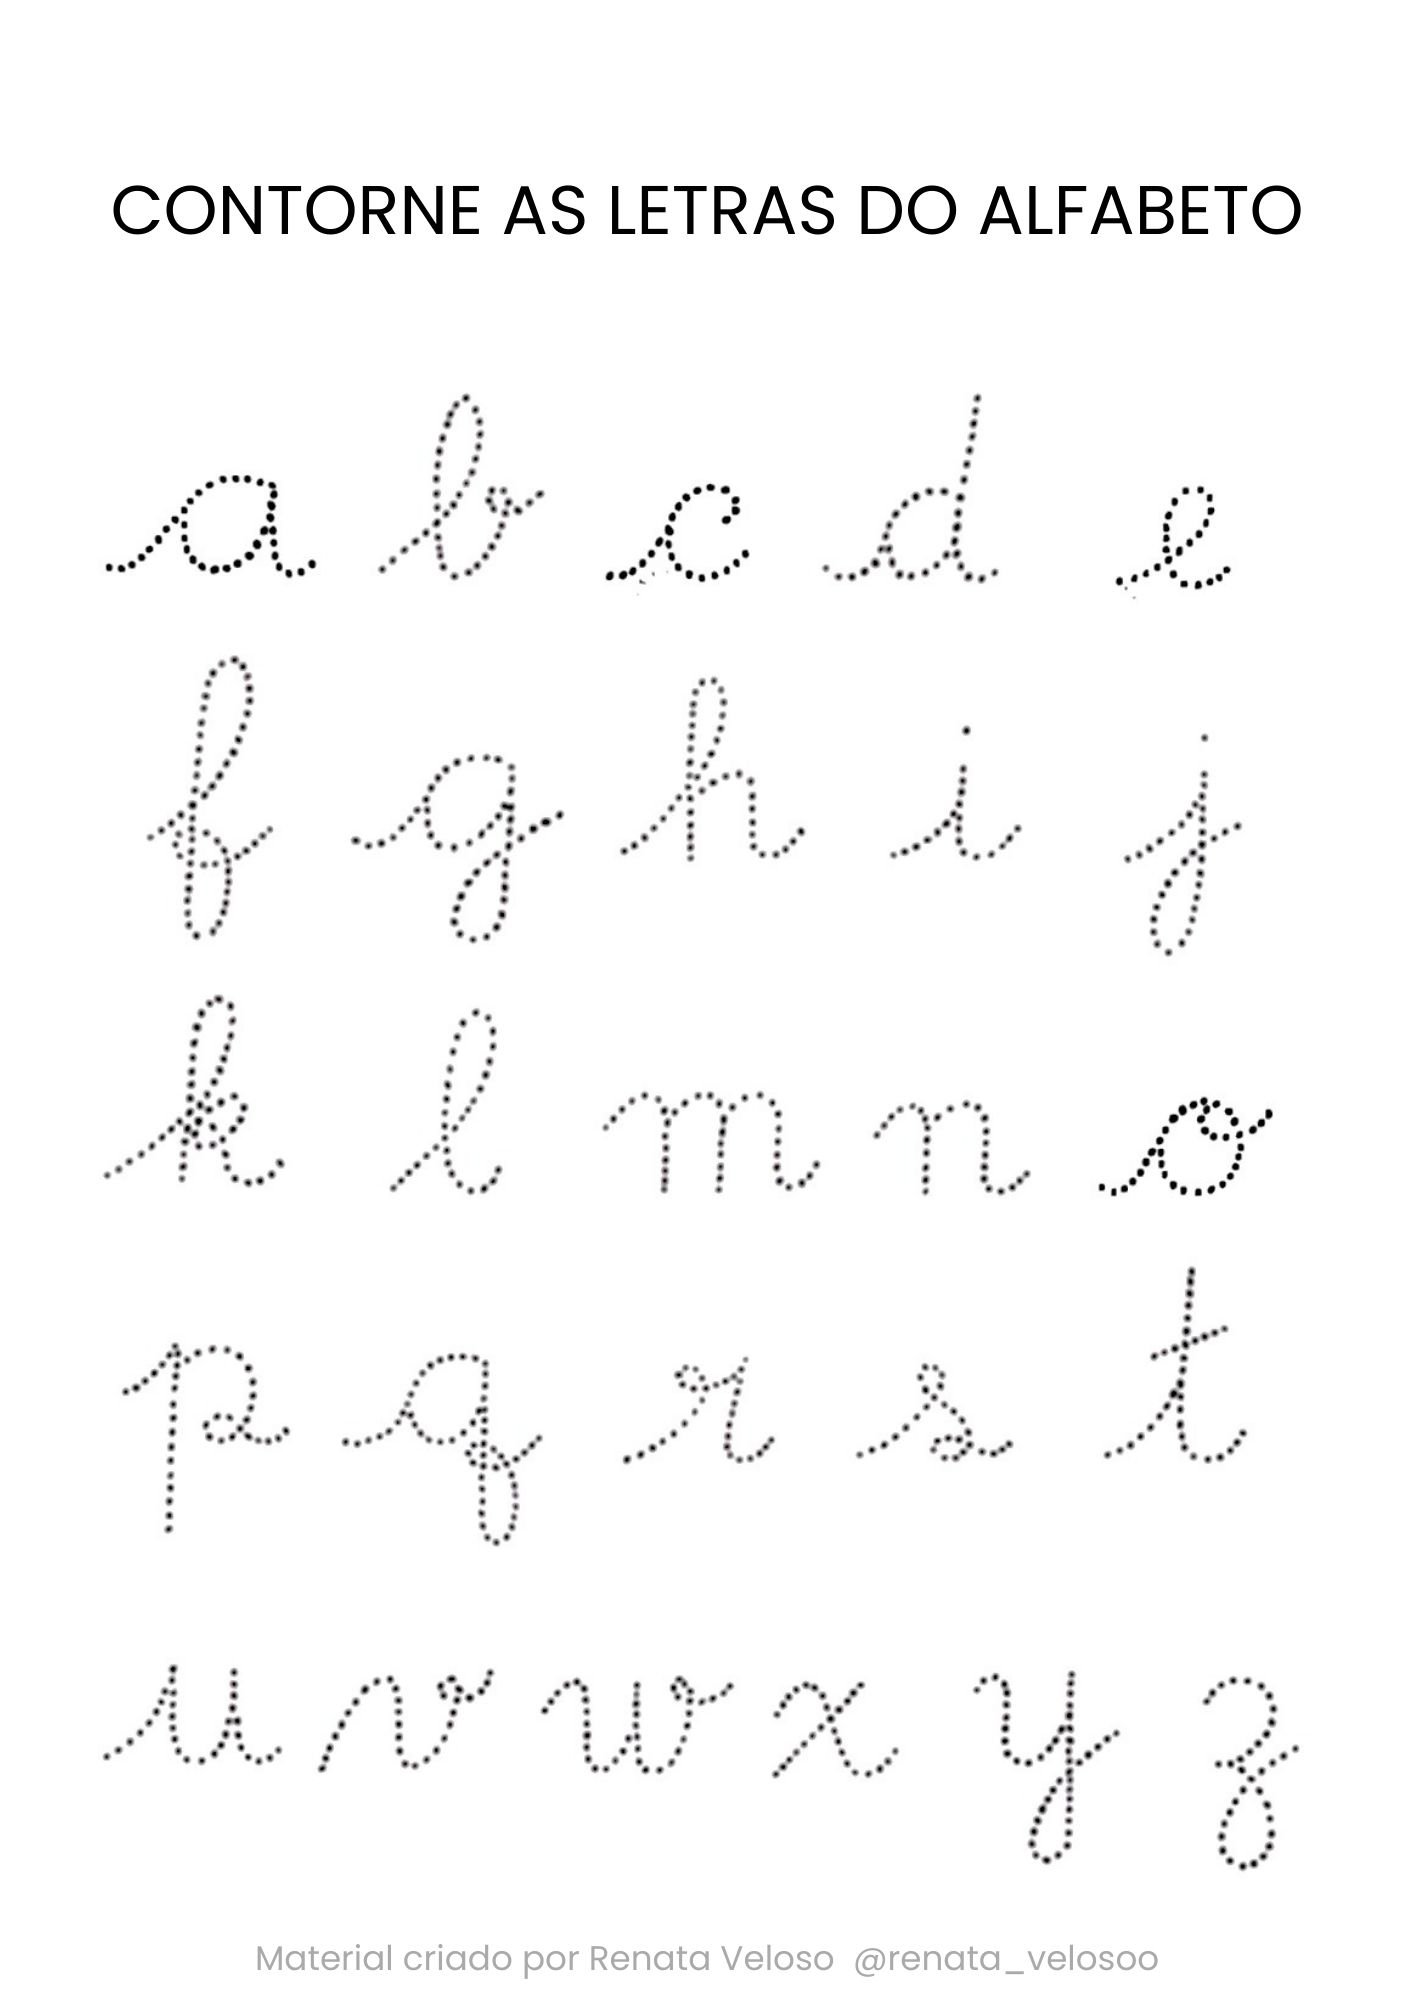 CONTORNE AS LETRAS DO ALFABETO
a b c d e
f g h i j
k l m n o
p q r s t
u v w x y z
Material criado por Renata Veloso @renata_velosoo